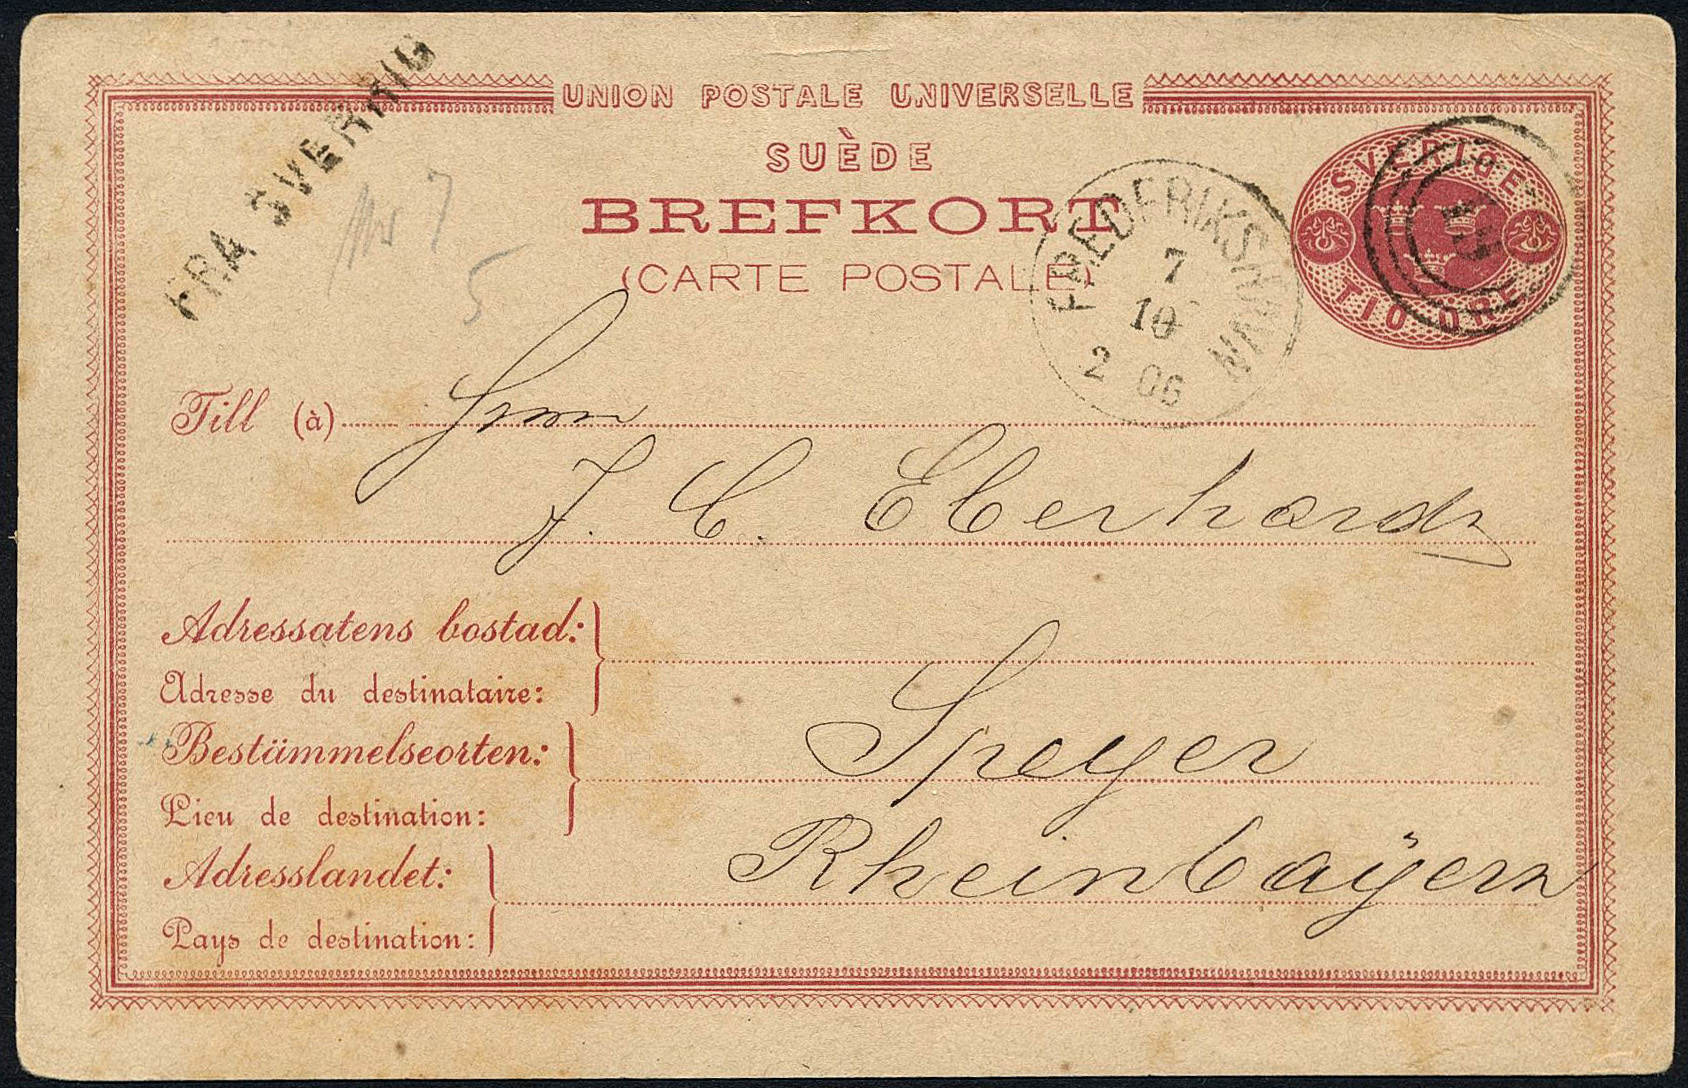 FRA SVERRIG
UNION POSTALE UNIVERSELLE
SUÈDE
BREFKORT
(CARTE POSTALE)
7
5
FREDERIKSHAVN
7
10
2 06
SVERIGE
TIO ÖRE
Till (à) Herrn
J. C. Eberhardt
Adressatens bostad:
Adresse du destinataire:
Bestämmelseorten: Speyer
Lieu de destination:
Adresslandet: Rheinbayern
Pays de destination: